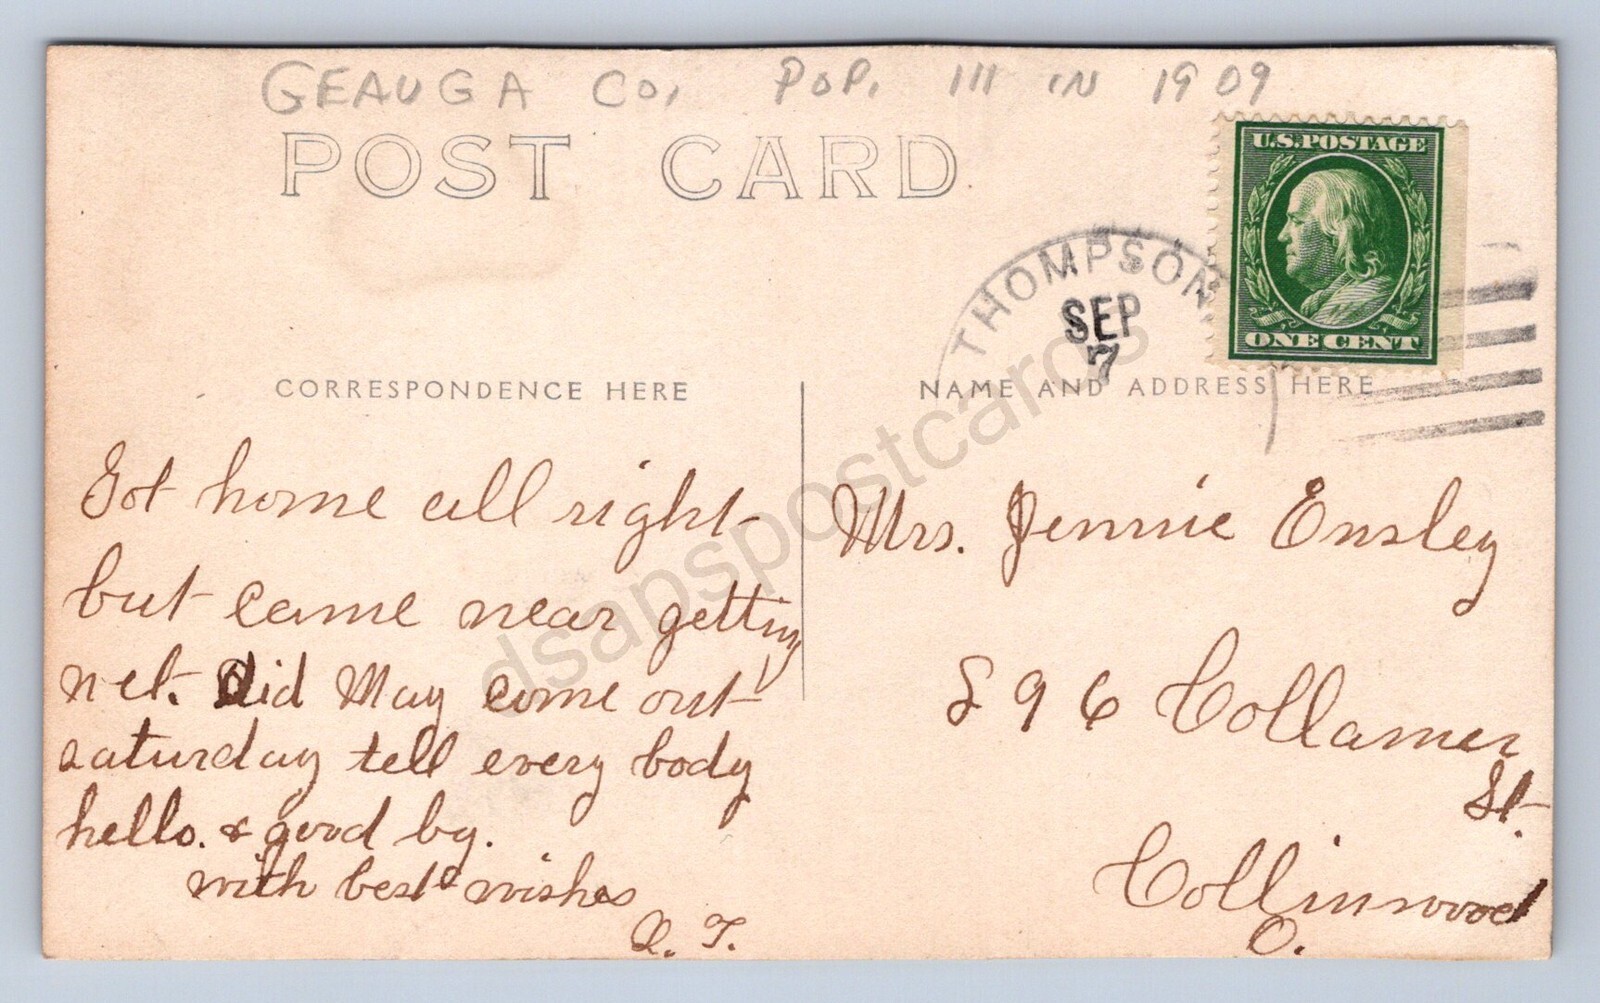 GEAUGA CO, POP. 111 IN 1909
POST CARD
U.S. POSTAGE
ONE CENT
THOMPSON
SEP
7
CORRESPONDENCE HERE
NAME AND ADDRESS HERE
Got home all right
but came near getting
wet. Did May come out
saturday tell every body
hello. & good by.
with best wishes
L. T.
Mrs. Jennie Ensley
896 Collamer
St.
Collinwood
O.
dsapspostcards